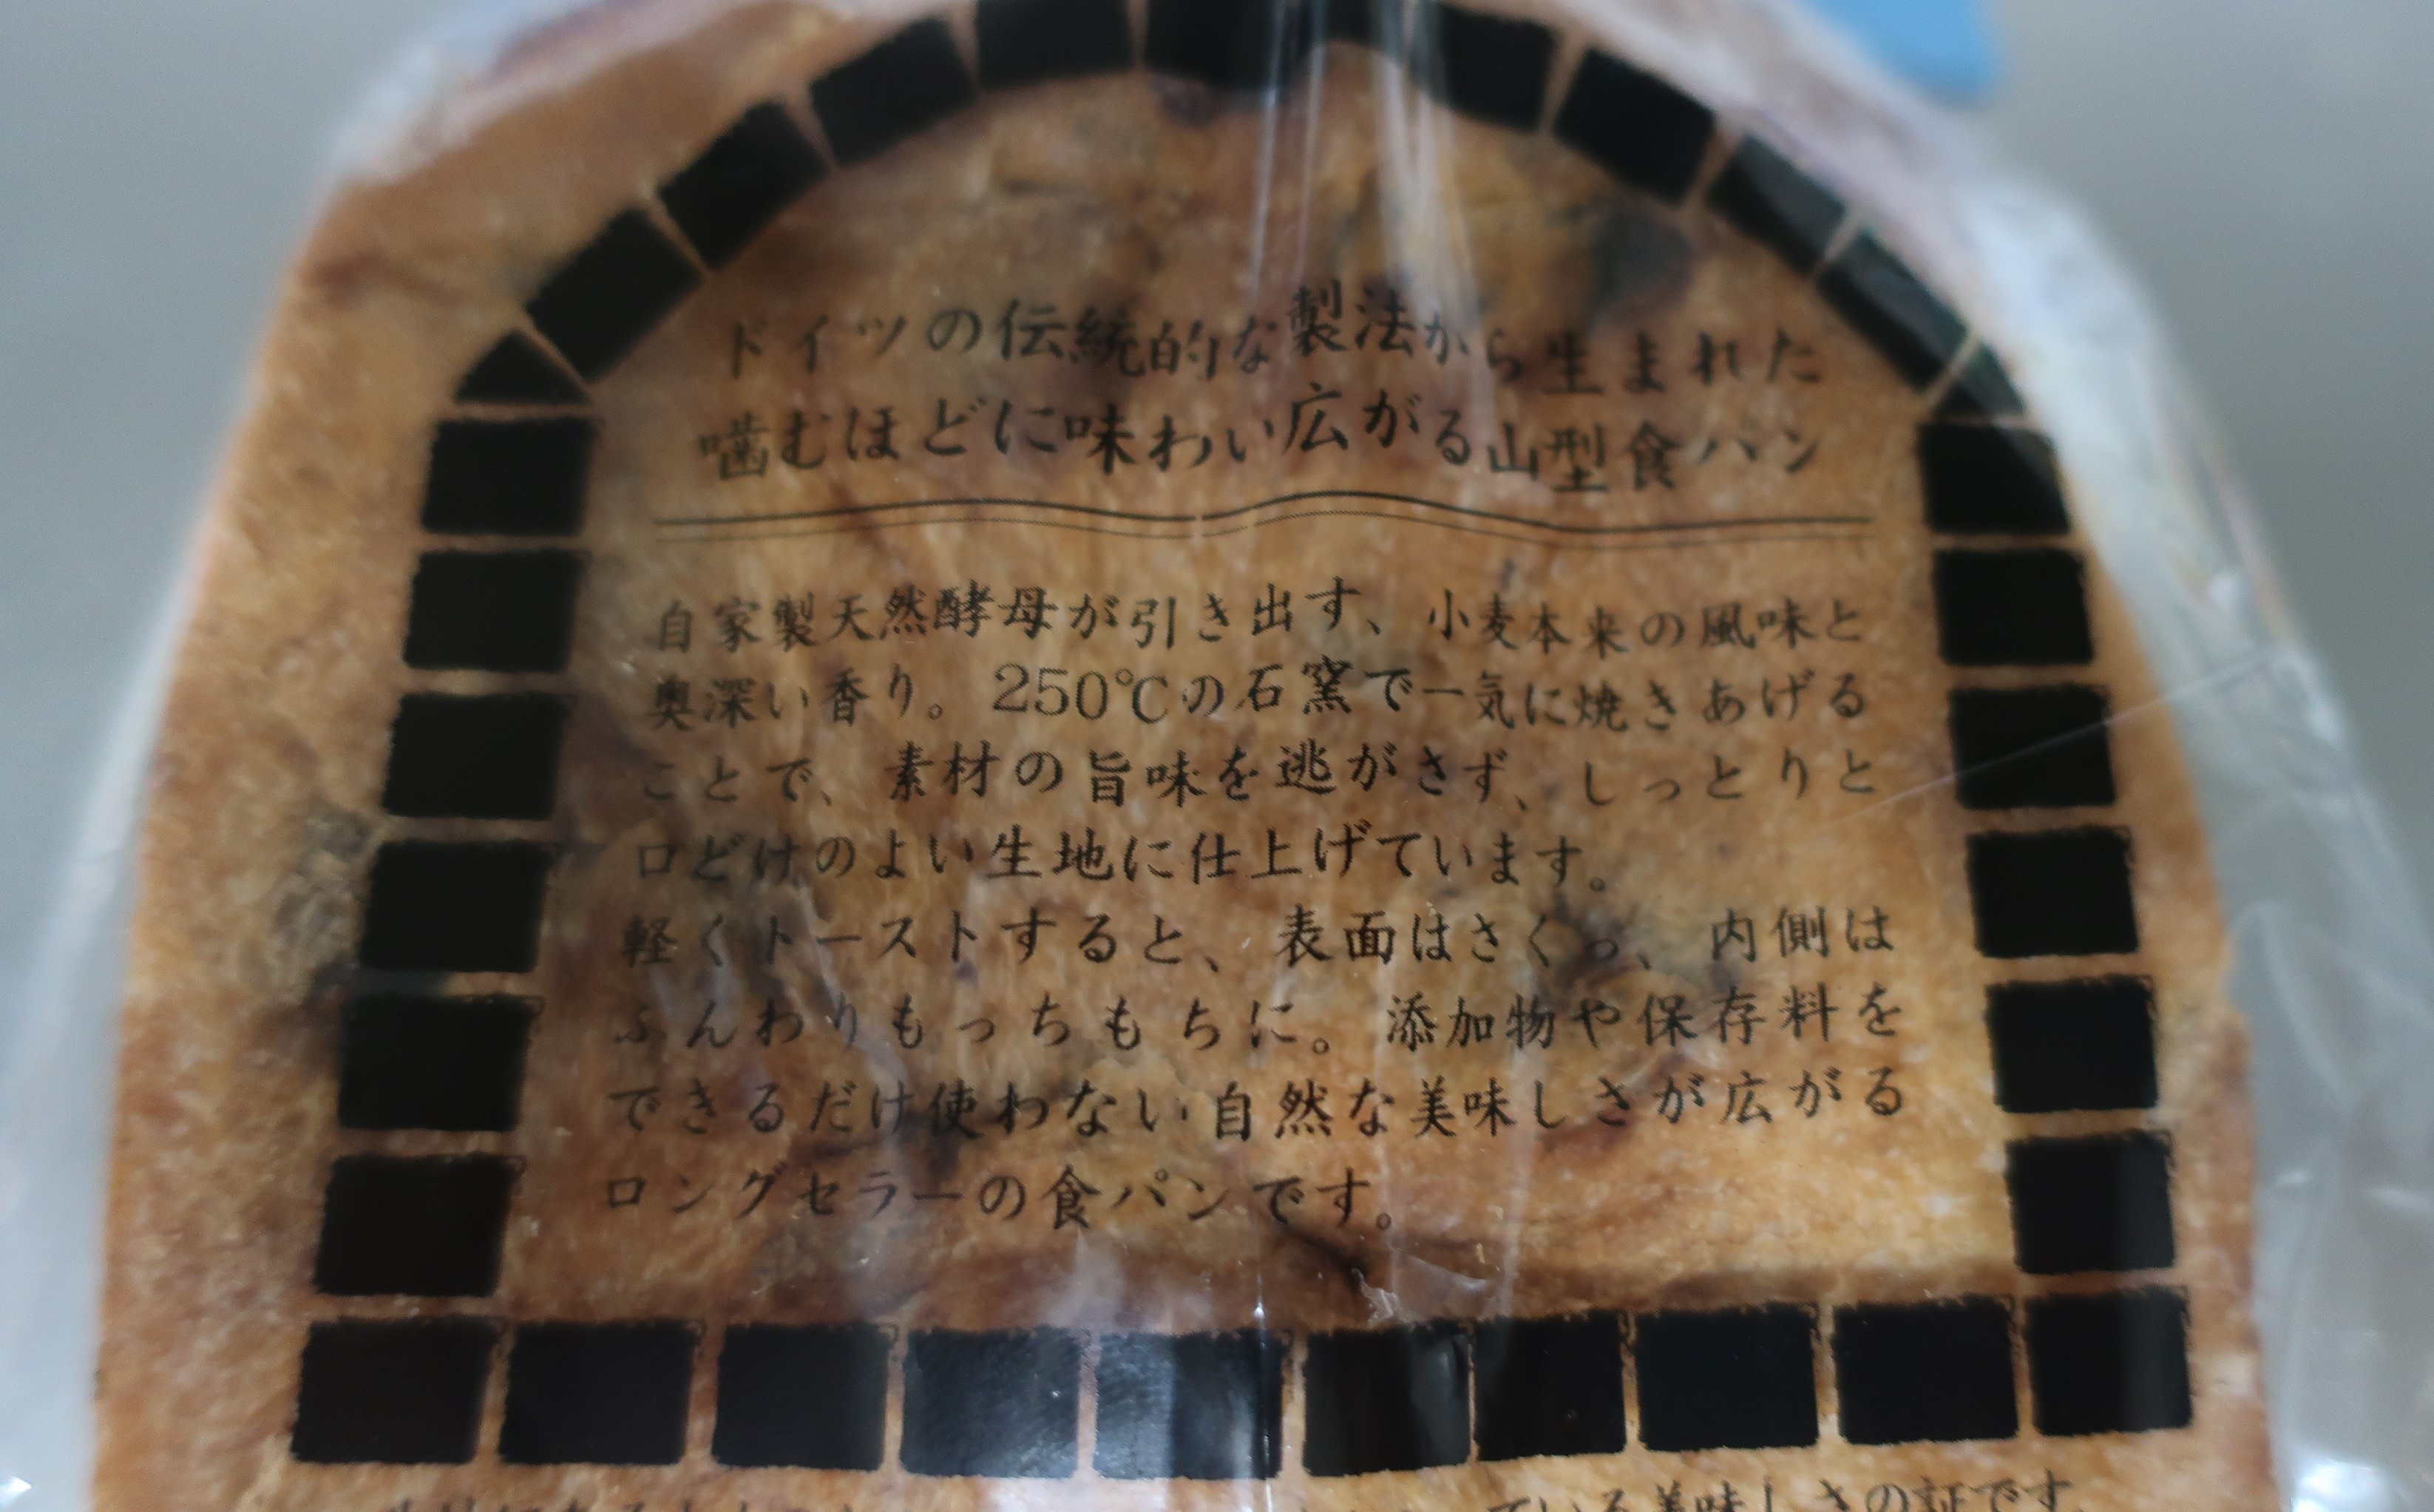 ドイツの伝統的な製法から生まれた
噛むほどに味わい広がる山型食パン
自家製天然酵母が引き出す、小麦本来の風味と
奥深い香り。250℃の石窯で一気に焼きあげる
ことで、素材の旨味を逃がさず、しっとりと
口どけのよい生地に仕上げています。
軽くトーストすると、表面はさくっ、内側は
ふんわりもっちもちに。添加物や保存料を
できるだけ使わない自然な美味しさが広がる
ロングセラーの食パンです。
ている美味しさの証です。